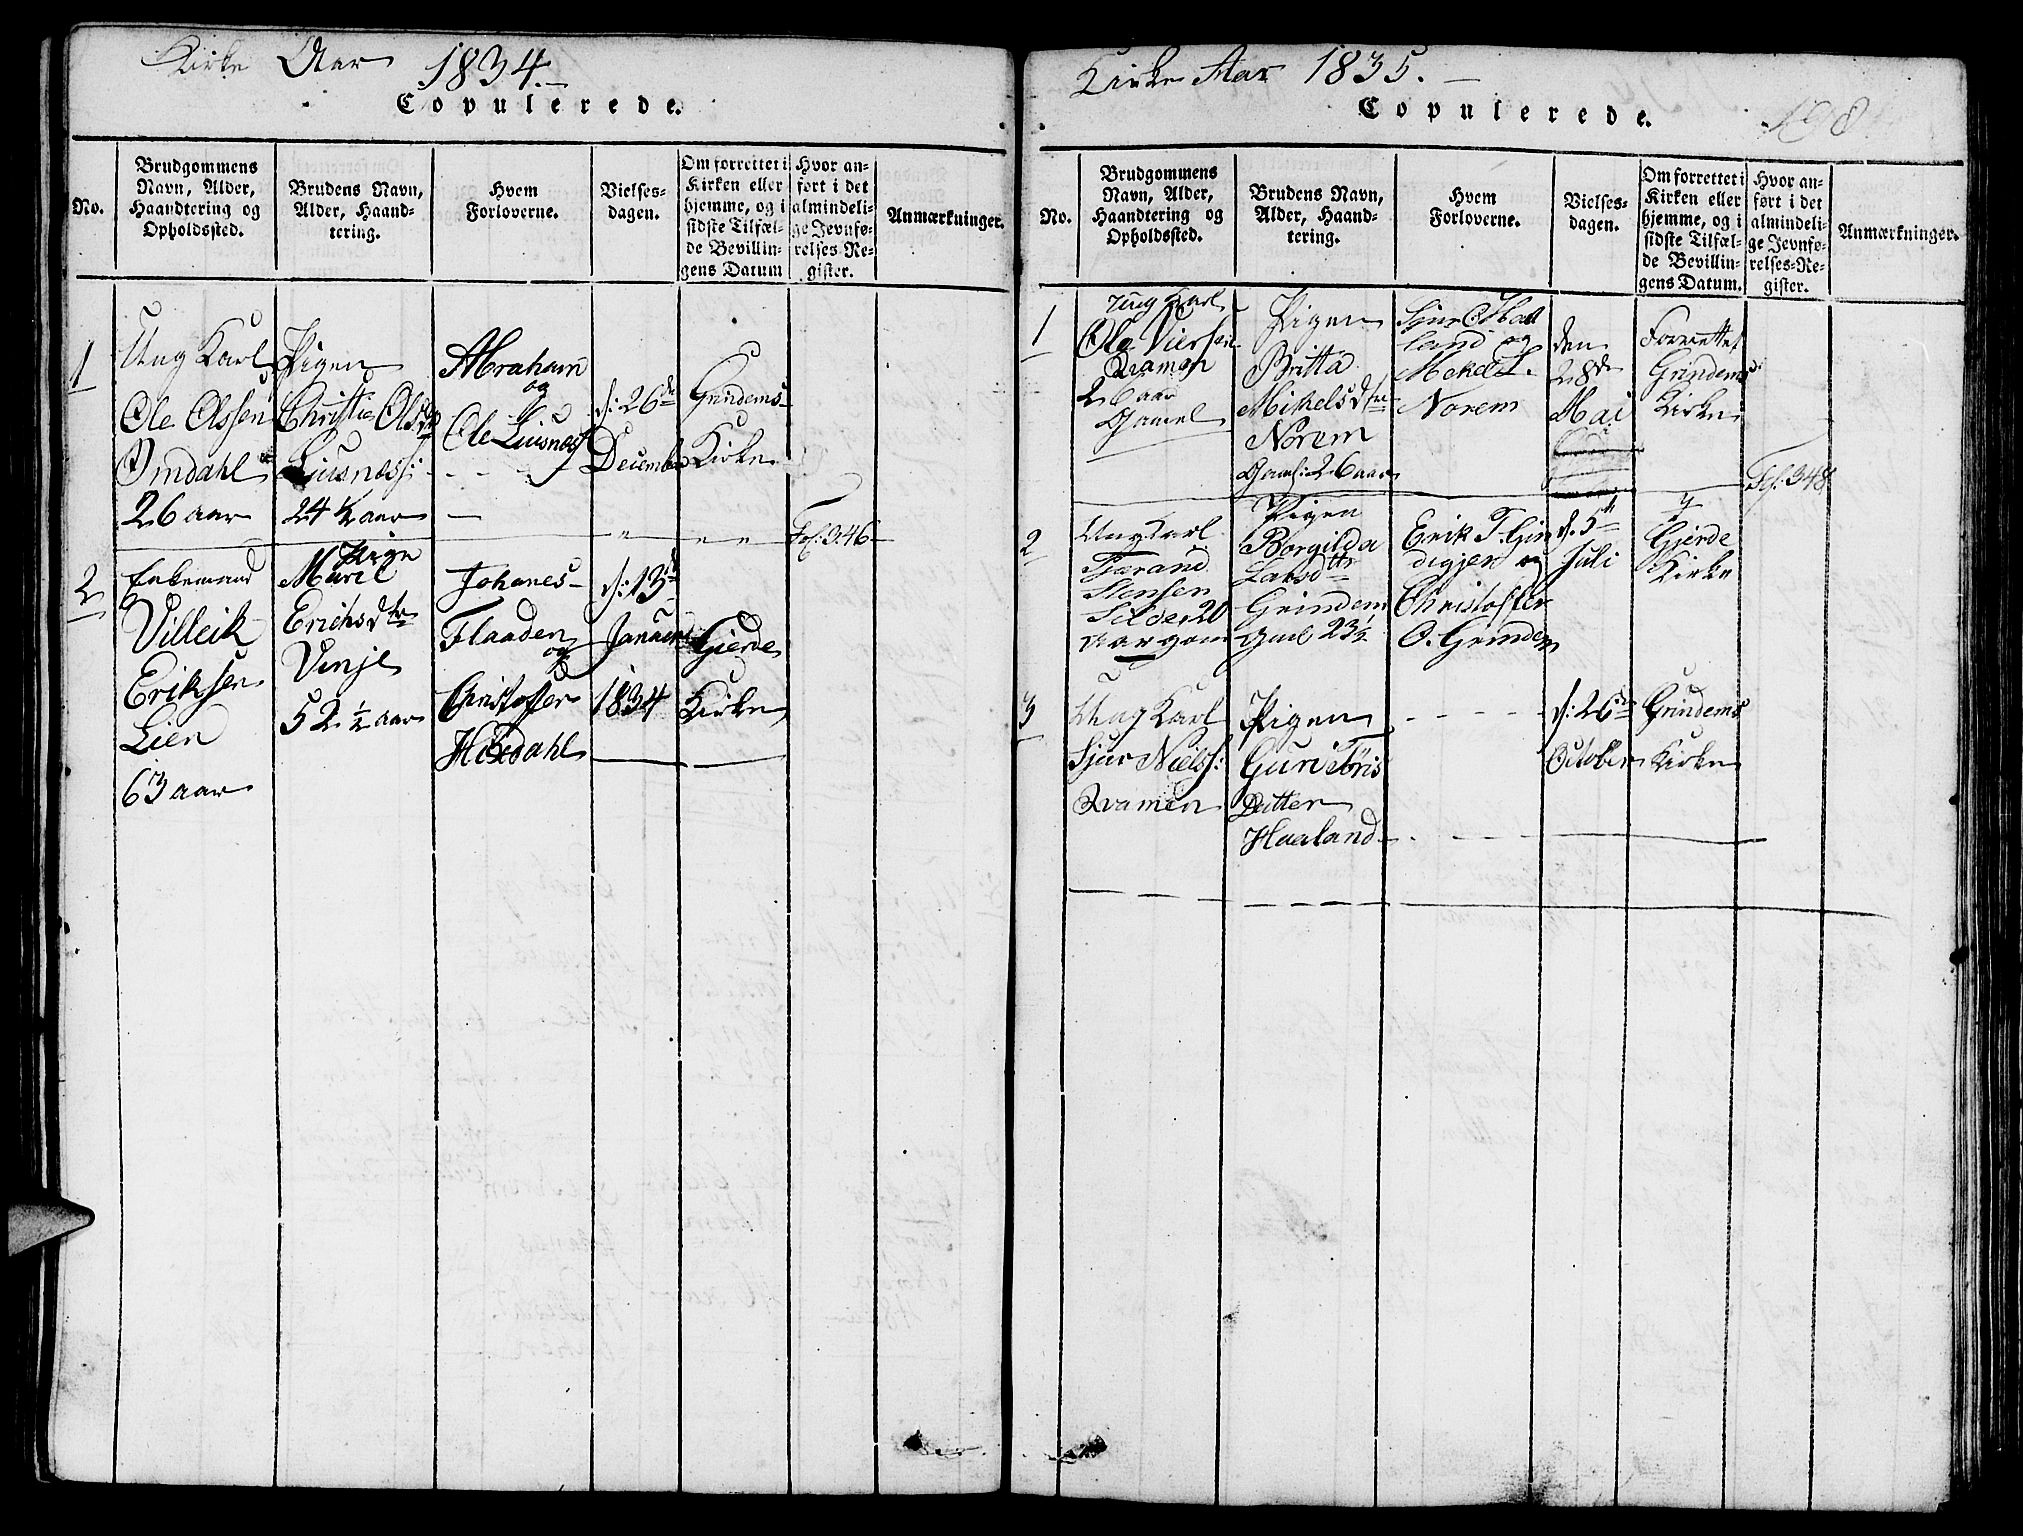 Kirke Aar 1834.
Copulerede.
No.
Brudgommens
Navn, Alder,
Haandtering og
Opholdssted.
Brudens Navn,
Alder, Haand-
tering.
Hvem
Forloverne.
Vielses-
dagen.
Om forrettet i
Kirken eller
hjemme, og i
sidste Tilfæl-
de Bevillin-
gens Datum
Hvor an-
ført i det
almindeli-
ge Jevnfø-
relses Re-
gister.
Anmærkninger.
1
Ung Karl
Ole Olssen
Imdahl
26 aar
Pigen
Christie Olsdtr
Liusnæs:
24 ½ aar
Abraham
og
Ole Liusnæs
d: 26de
December
Grindems
Kirke
Fol. 346
2
Enkemand
Villeik
Eriksen
Lien
63 aar
Pige
Marie
Erichsdtr
Vinje
52 ½ aar
Johanes
Flaaden
og
Christoffer
Hixdahl
d: 13de
Januar
1834
Gierde
Kirke
Kirke Aar 1835.
Copulerede.
198
No.
Brudgommens
Navn, Alder,
Haandtering og
Opholdssted.
Brudens Navn,
Alder, Haand-
tering.
Hvem
Forloverne.
Vielses-
dagen.
Om forrettet i
Kirken eller
hjemme, og i
sidste Tilfæl-
de Bevillin-
gens Datum.
Hvor an-
ført i det
almindeli-
ge Jevnfø-
relses-Re-
gister.
Anmærkninger.
1
Ung Karl
Ole Viersen
Qvamen
26 aar
Gamel
Pigen
Britta
Mikelsdtr
Norem
Gaml: 26 aar
land og
Norem
den
28de
Mai
Forrettet
Grindems
Kirke
Fol. 348
2
Ung Karl
Tarand
Stensen
Selder 20
aar gam
Pigen
Borgilda
Larsdtr
Grindem
Gml 23½
Erik T. Grin
digjer og
Christoffer
O. Grindem
d. 5te
Juli
Gjerde
Kirke
3
Ung Karl
Sjur Nielss:
Qvamen
Pigen
Guri Tøris
Datter
Haaland
d: 26de
October
Grindems
Kirke